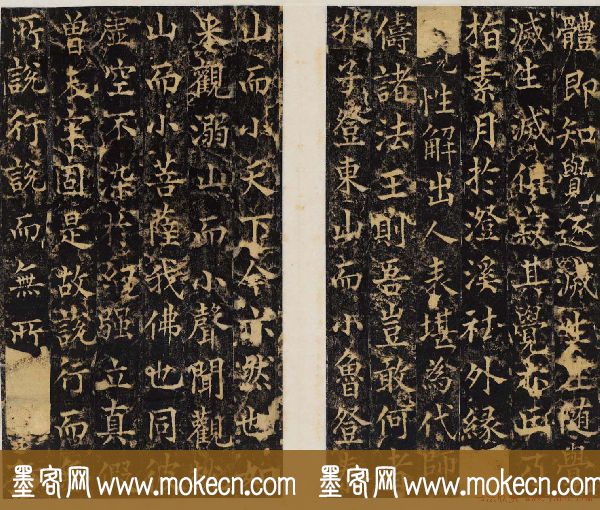 體即知覺逐滅生生隨覺
滅生滅俱寂其覺亦正乃
指素月於澄溪社外緣
性解出人表堪為代師
儔諸法王則吾豈敢何者
非子登東山而小魯登
山而小天下今亦然也如
來觀溺山而小聲聞觀
山而小菩薩我佛也同彼
虛空不染於強立真假
曾未牢固是故說行而
所說行說而無所
墨客网 www.mokecn.com 墨客网 www.mokecn.com